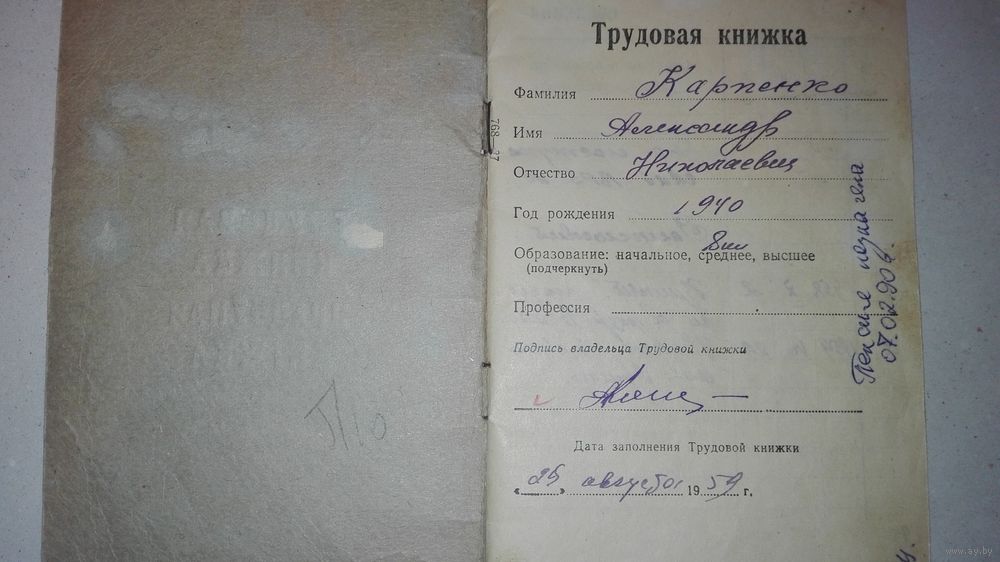 Трудовая книжка
Фамилия Карпенко
Имя Александр
Отчество Николаевич
Год рождения 1940
Образование: начальное, среднее, высшее
8 кл
(подчеркнуть)
Профессия
Подпись владельца Трудовой книжки
Дата заполнения Трудовой книжки
«25» августа 1959 г.
768 37
07.02.90 г.
www.ay.by